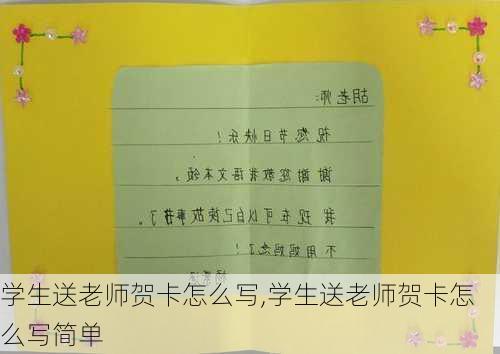 胡老师:
祝您节日快乐！
谢谢您教我语文本领，
我现在可以自己读故事书了。
不用妈妈念了！
学生送老师贺卡怎么写,学生送老师贺卡怎
么写简单